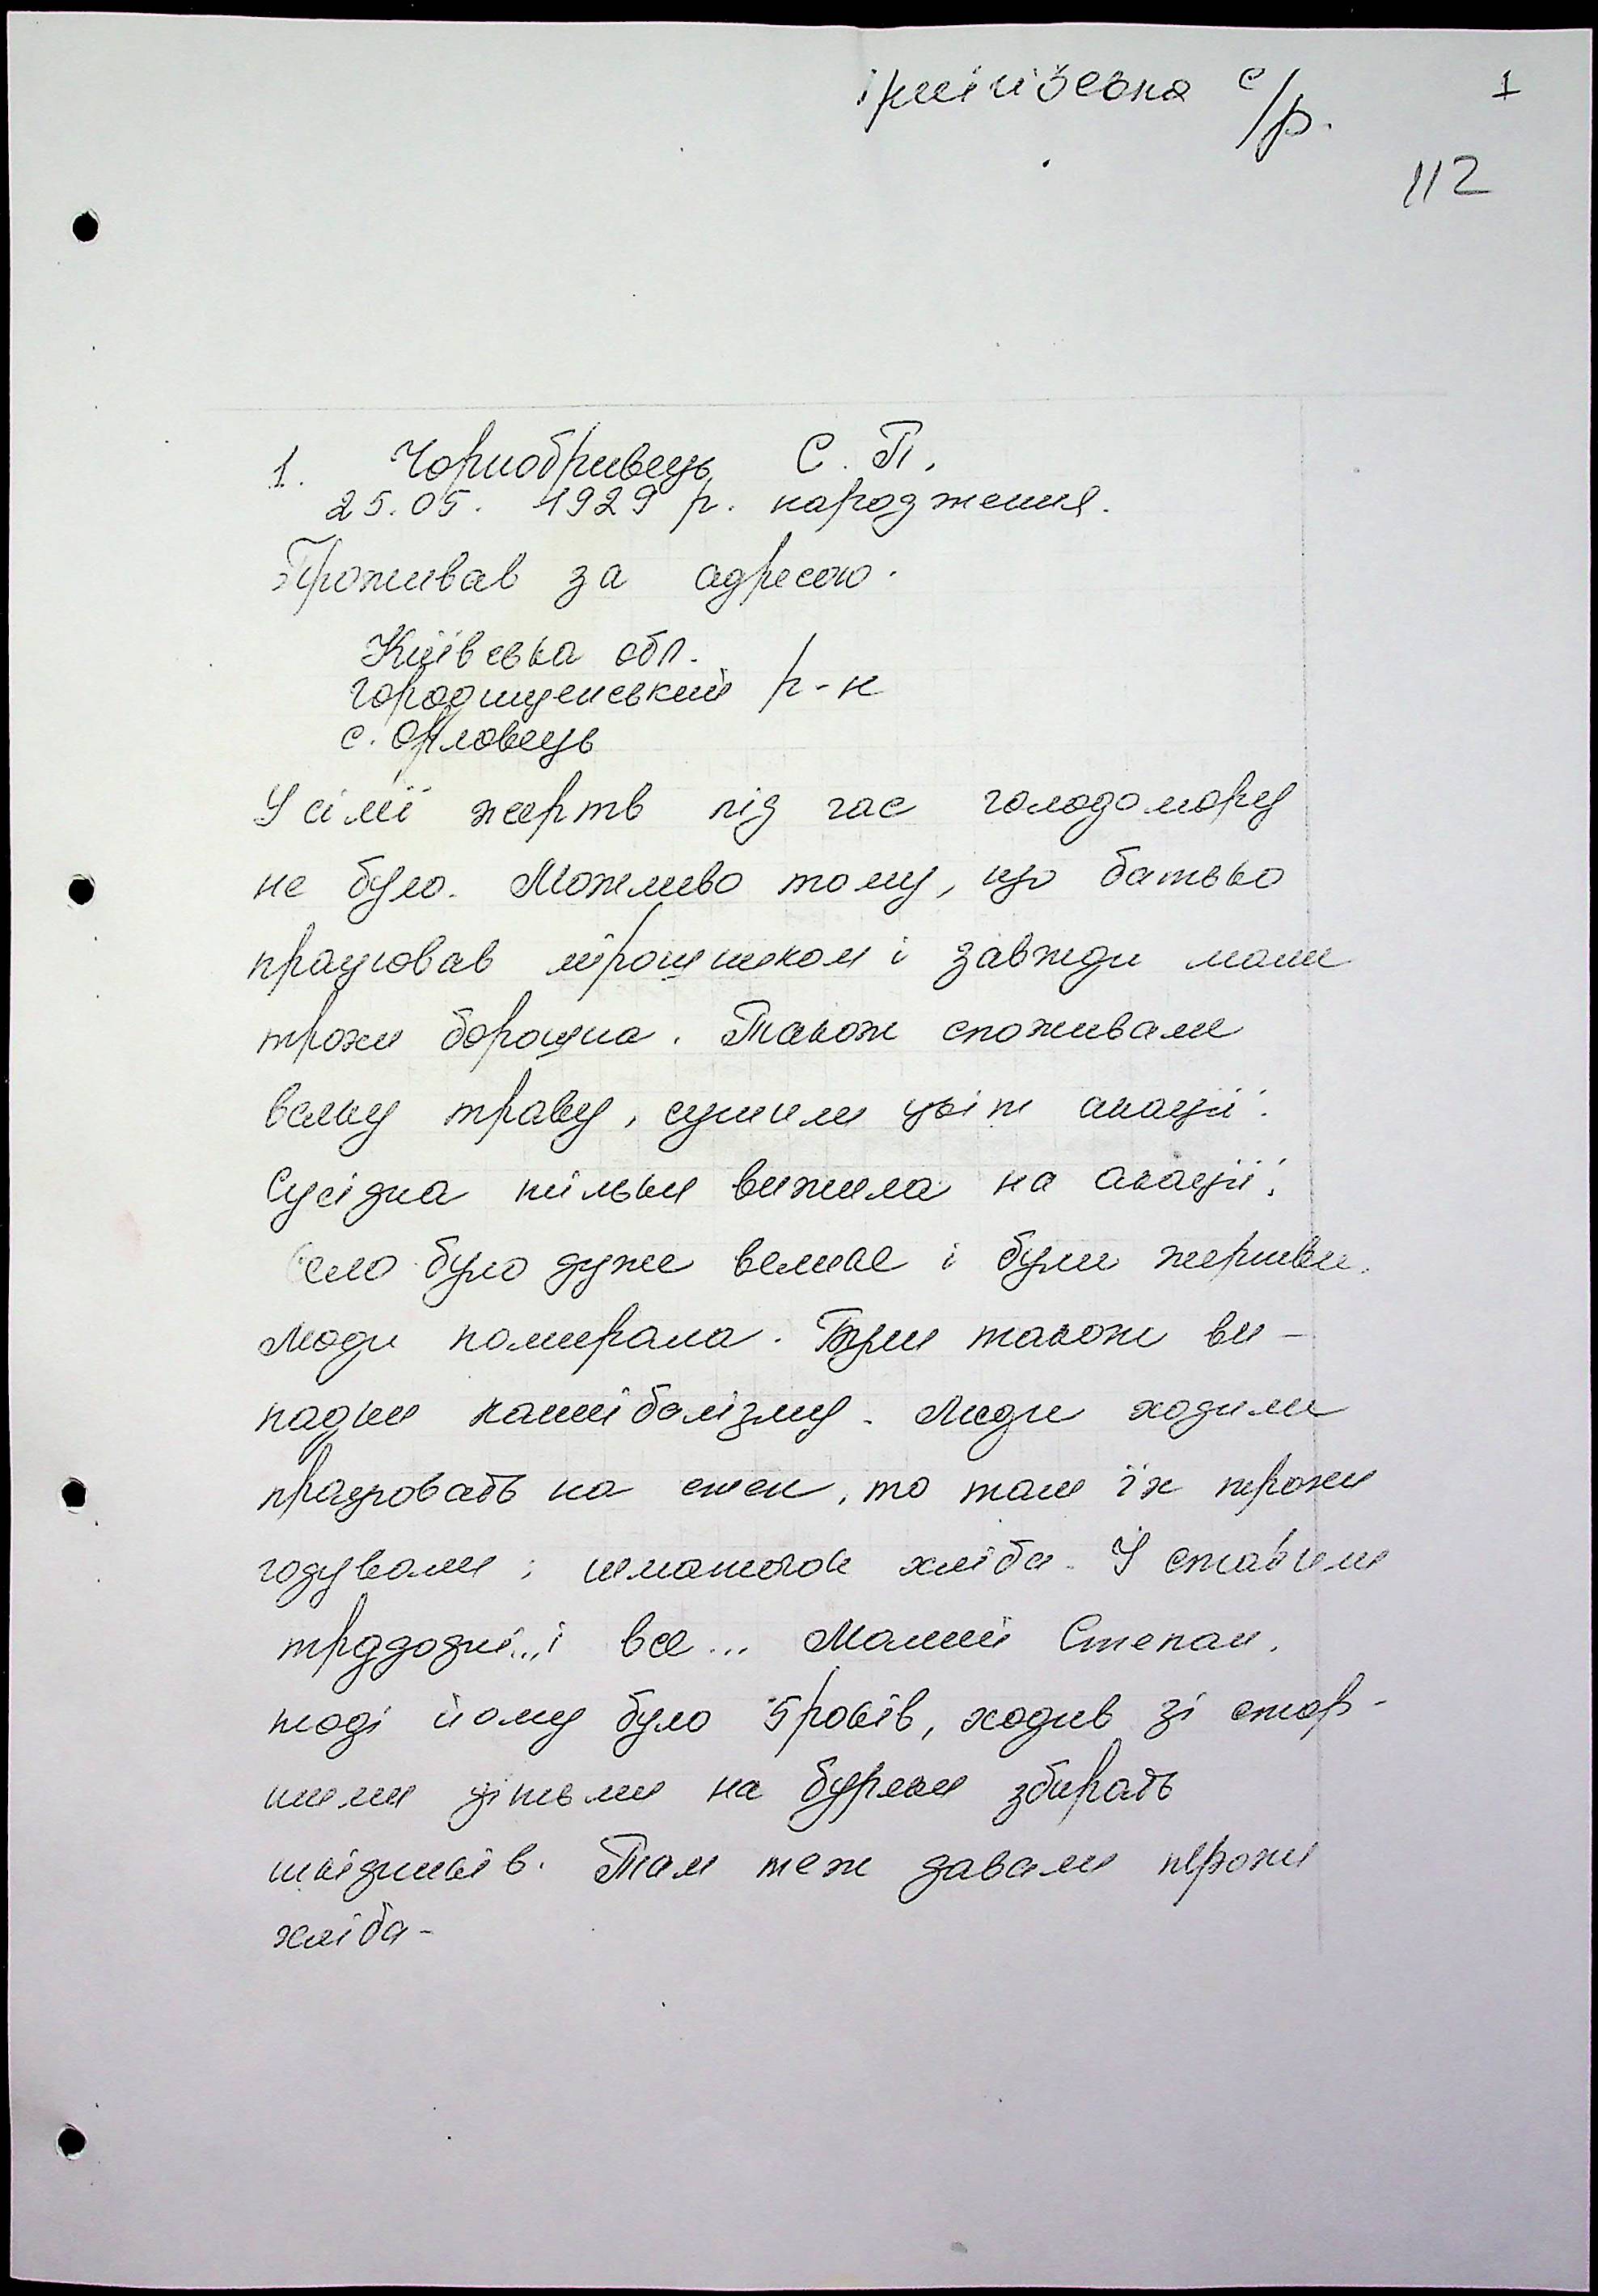 с/р. 1
112
1. Чорнобривець С. П.
25.05. 1929 р. народження.
Проживав за адресою.
Київська обл.
Городищенський р-н
с. Орловець
У сімї жертв під час голодомору
не було. Можливо тому, що батько
працював мірошником і завжди мали
трохи борошна. Також споживали
всяку траву, сушили цвіт акації.
Сусідка тільки вижила на акації.
Село було дуже велике і були жертви.
Люди помирала. Були також ви-
падки канібалізму. Люди ходили
працювать на степ, то там їх трохи
годували: шматочок хліба. Й ставили
трудодні... і все... Малий Степан,
тоді йому було 5 років, ходив зі стар-
шими дітьми на буряки збирать
шкідників. Там теж давали трохи
хліба-